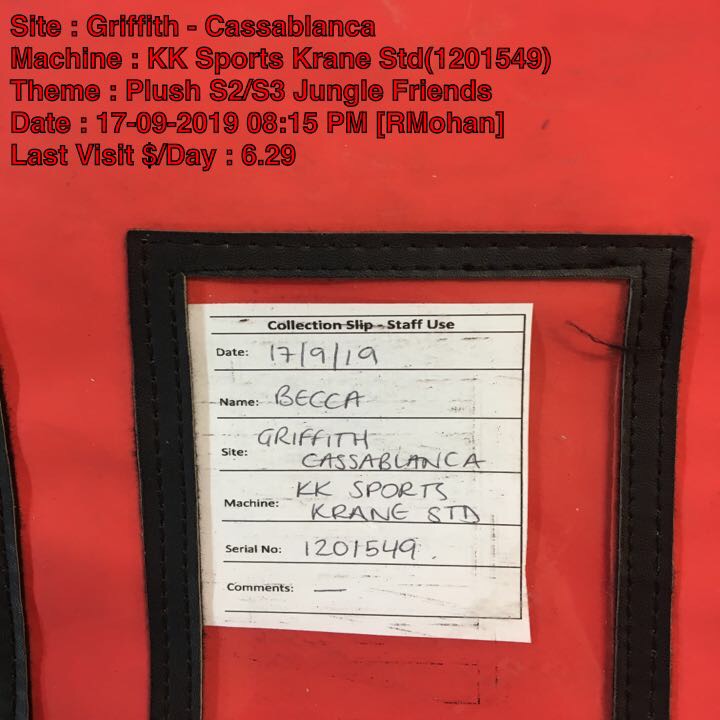 Site : Griffith - Cassablanca
Machine : KK Sports Krane Std(1201549)
Theme : Plush S2/S3 Jungle Friends
Date : 17-09-2019 08:15 PM [RMohan]
Last Visit $/Day : 6.29
Collection Slip - Staff Use
Date: 17/9/19
Name: BECCA
Site: GRIFFITH
CASSABLANCA
Machine: KK SPORTS
KRANE STD
Serial No: 1201549.
Comments: —